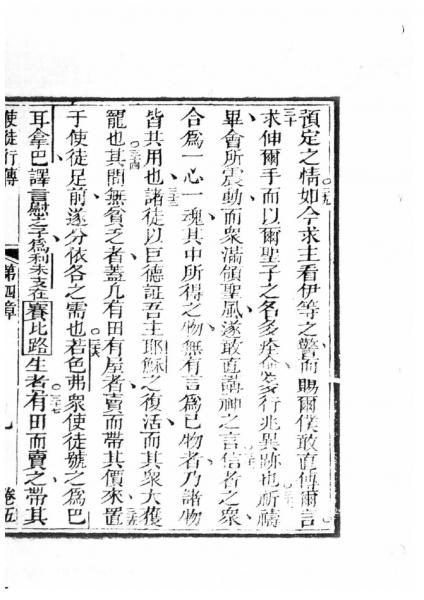 預定之情如今求主看伊等之驚而賜爾僕敢直傳爾言
求伸爾手而以爾聖子之名多痊愈多行兆異跡也祈禱
畢會所震動而衆滿領聖風遂敢直講神之言信者之衆
合為一心一魂其中所得之物無有言為己物者乃諸物
皆其用也諸徒以巨德証吾主耶穌之復活而其衆大獲
寵也其間無貧乏者蓋凡有田有屋者賣而帶其價來置
于使徒足前遂分依各之需也若色弗衆使徒號之為巴
耳拿巴譯言慰子為利未支在賽比路生者有田而賣之帶其
使徒行傳 第四章 九 卷五